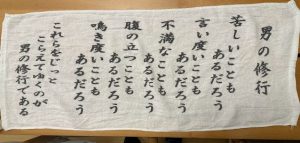 男の修行
苦しいことも
あるだろう
言い度いことも
あるだろう
不満なことも
あるだろう
腹の立つことも
あるだろう
鳴き度いことも
あるだろう
これらをじっと
こらえてゆくのが
男の修行である